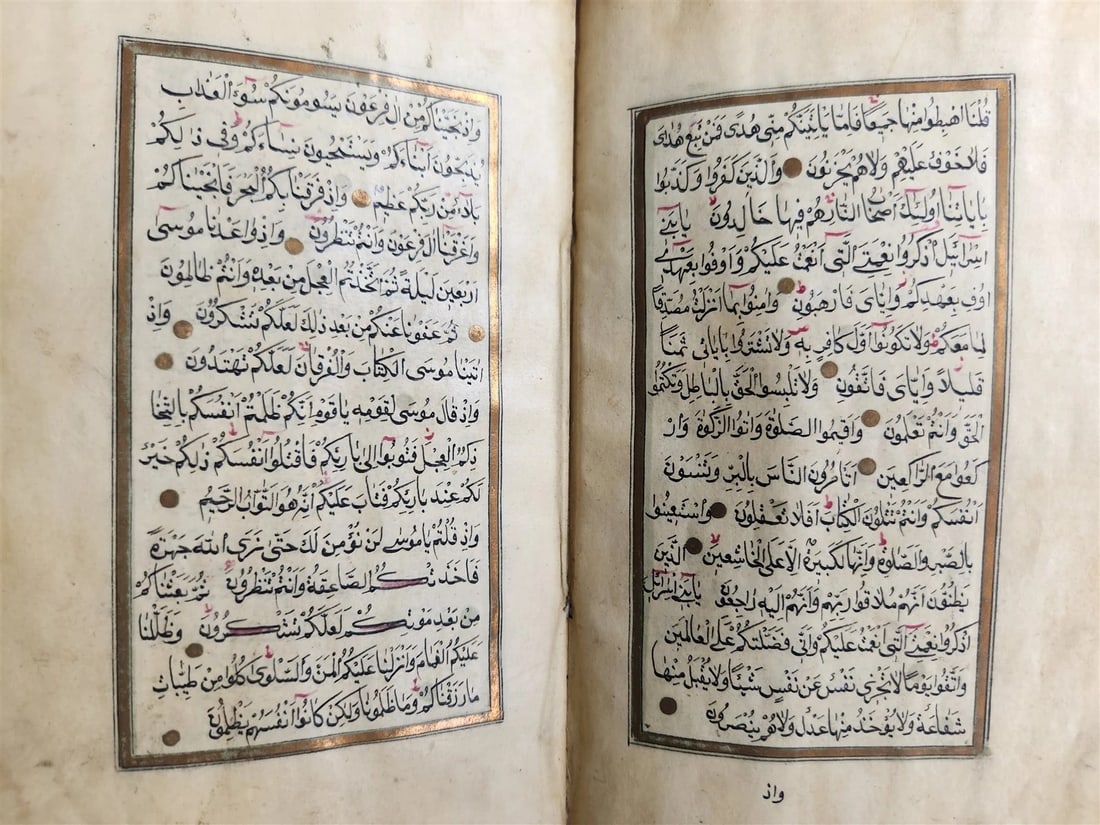 قُلْنَا اهْبِطُوا مِنْهَا جَمِيعًا فَاِمَّا يَاْتِيَنَّكُمْ مِنّٖى هُدًى فَمَنْ تَبِعَ هُدَاىَ
فَلَا خَوْفٌ عَلَيْهِمْ وَلَا هُمْ يَحْزَنُونَ وَالَّذٖينَ كَفَرُوا وَكَذَّبُوا
بِاٰيَاتِنَا اُولٰئِكَ اَصْحَابُ النَّارِ هُمْ فٖيهَا خَالِدُونَ يَا بَنٖى
اِسْرَائٖلَ اذْكُرُوا نِعْمَتِىَ الَّتٖى اَنْعَمْتُ عَلَيْكُمْ وَاَوْفُوا بِعَهْدٖى
اُوفِ بِعَهْدِكُمْ وَاِيَّاىَ فَارْهَبُونِ وَاٰمِنُوا بِمَا اَنْزَلْتُ مُصَدِّقًا
لِمَا مَعَكُمْ وَلَا تَكُونُوا اَوَّلَ كَافِرٍ بِهٖ وَلَا تَشْتَرُوا بِاٰيَاتٖى ثَمَنًا
قَلٖيلًا وَاِيَّاىَ فَاتَّقُونِ وَلَا تَلْبِسُوا الْحَقَّ بِالْبَاطِلِ وَتَكْتُمُوا
الْحَقَّ وَاَنْتُمْ تَعْلَمُونَ وَاَقٖيمُوا الصَّلٰوةَ وَاٰتُوا الزَّكٰوةَ وَارْ
كَعُوا مَعَ الرَّاكِعٖينَ اَتَاْمُرُونَ النَّاسَ بِالْبِرِّ وَتَنْسَوْنَ
اَنْفُسَكُمْ وَاَنْتُمْ تَتْلُونَ الْكِتَابَ اَفَلَا تَعْقِلُونَ وَاسْتَعٖينُوا
بِالصَّبْرِ وَالصَّلٰوةِ وَاِنَّهَا لَكَبٖيرَةٌ اِلَّا عَلَى الْخَاشِعٖينَ الَّذٖينَ
يَظُنُّونَ اَنَّهُمْ مُلَاقُوا رَبِّهِمْ وَاَنَّهُمْ اِلَيْهِ رَاجِعُونَ يَا بَنٖى اِسْرَائٖلَ
اذْكُرُوا نِعْمَتِىَ الَّتٖى اَنْعَمْتُ عَلَيْكُمْ وَاَنّٖى فَضَّلْتُكُمْ عَلَى الْعَالَمٖينَ
وَاتَّقُوا يَوْمًا لَا تَجْزٖى نَفْسٌ عَنْ نَفْسٍ شَيْئًا وَلَا يُقْبَلُ مِنْهَا
شَفَاعَةٌ وَلَا يُؤْخَذُ مِنْهَا عَدْلٌ وَلَا هُمْ يُنْصَرُونَ
واذ
وَاِذْ نَجَّيْنَاكُمْ مِنْ اٰلِ فِرْعَوْنَ يَسُومُونَكُمْ سُوءَ الْعَذَابِ
يُذَبِّحُونَ اَبْنَاءَكُمْ وَيَسْتَحْيُونَ نِسَاءَكُمْ وَفٖى ذٰلِكُمْ
بَلَاءٌ مِنْ رَبِّكُمْ عَظٖيمٌ وَاِذْ فَرَقْنَا بِكُمُ الْبَحْرَ فَاَنْجَيْنَاكُمْ
وَاَغْرَقْنَا اٰلَ فِرْعَوْنَ وَاَنْتُمْ تَنْظُرُونَ وَاِذْ وَاعَدْنَا مُوسٰى
اَرْبَعٖينَ لَيْلَةً ثُمَّ اتَّخَذْتُمُ الْعِجْلَ مِنْ بَعْدِهٖ وَاَنْتُمْ ظَالِمُونَ
ثُمَّ عَفَوْنَا عَنْكُمْ مِنْ بَعْدِ ذٰلِكَ لَعَلَّكُمْ تَشْكُرُونَ وَاِذْ
اٰتَيْنَا مُوسَى الْكِتَابَ وَالْفُرْقَانَ لَعَلَّكُمْ تَهْتَدُونَ
وَاِذْ قَالَ مُوسٰى لِقَوْمِهٖ يَا قَوْمِ اِنَّكُمْ ظَلَمْتُمْ اَنْفُسَكُمْ بِاتِّخَا
ذِكُمُ الْعِجْلَ فَتُوبُوا اِلٰى بَارِئِكُمْ فَاقْتُلُوا اَنْفُسَكُمْ ذٰلِكُمْ خَيْرٌ
لَكُمْ عِنْدَ بَارِئِكُمْ فَتَابَ عَلَيْكُمْ اِنَّهُ هُوَ التَّوَّابُ الرَّحٖيمُ
وَاِذْ قُلْتُمْ يَا مُوسٰى لَنْ نُؤْمِنَ لَكَ حَتّٰى نَرَى اللّٰهَ جَهْرَةً
فَاَخَذَتْكُمُ الصَّاعِقَةُ وَاَنْتُمْ تَنْظُرُونَ ثُمَّ بَعَثْنَاكُمْ
مِنْ بَعْدِ مَوْتِكُمْ لَعَلَّكُمْ تَشْكُرُونَ وَظَلَّلْنَا
عَلَيْكُمُ الْغَمَامَ وَاَنْزَلْنَا عَلَيْكُمُ الْمَنَّ وَالسَّلْوٰى كُلُوا مِنْ طَيِّبَاتِ
مَا رَزَقْنَاكُمْ وَمَا ظَلَمُونَا وَلٰكِنْ كَانُوا اَنْفُسَهُمْ يَظْلِمُونَ